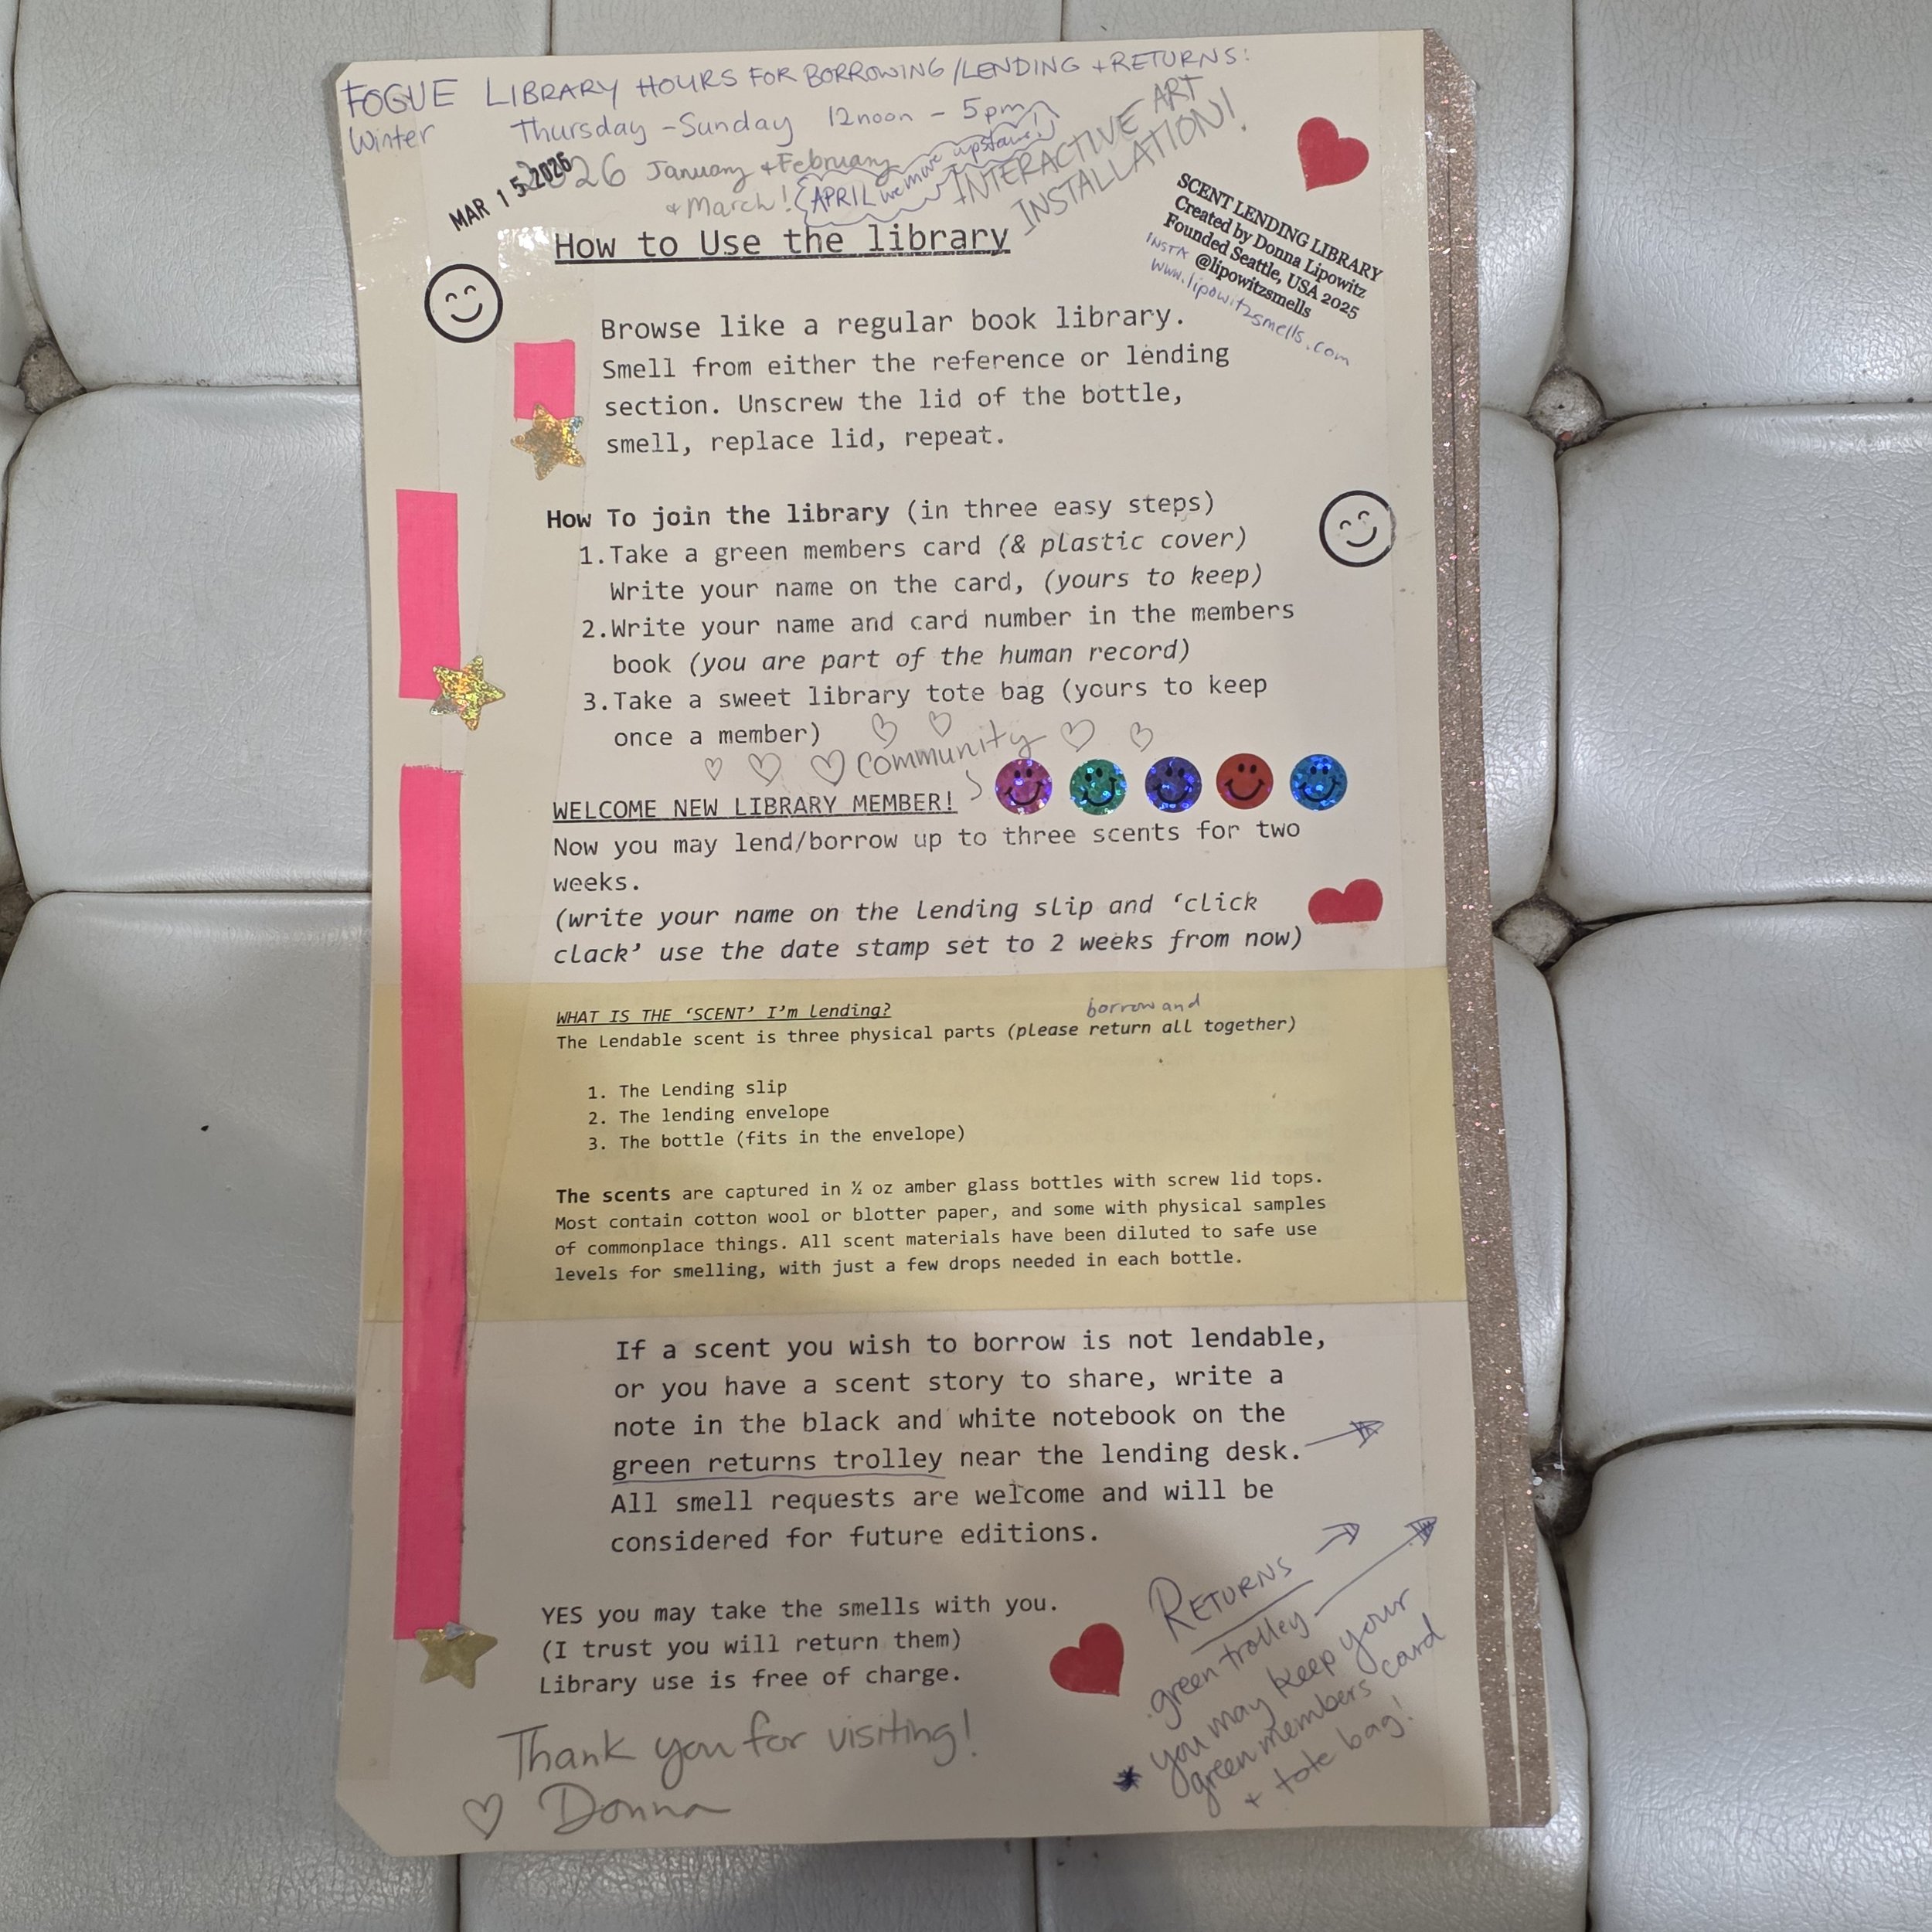 FOGUE LIBRARY HOURS FOR BORROWING/LENDING + RETURNS:
Winter Thursday - Sunday 12noon - 5pm
2026 January + February
+ March!
APRIL we move upstairs!
INTERACTIVE ART
INSTALLATION!
MAR 15 2026
SCENT LENDING LIBRARY
Created by Donna Lipowitz
Founded Seattle, USA 2025
INSTA @lipowitzsmells
www.lipowitzsmells.com
How to Use the library
Browse like a regular book library.
Smell from either the reference or lending
section. Unscrew the lid of the bottle,
smell, replace lid, repeat.
How To join the library (in three easy steps)
1.Take a green members card (& plastic cover)
Write your name on the card, (yours to keep)
2.Write your name and card number in the members
book (you are part of the human record)
3.Take a sweet library tote bag (yours to keep
once a member)
Community
WELCOME NEW LIBRARY MEMBER!
Now you may lend/borrow up to three scents for two
weeks.
(write your name on the lending slip and ‘click
clack’ use the date stamp set to 2 weeks from now)
WHAT IS THE ‘SCENT’ I’m lending?
borrow and
The Lendable scent is three physical parts (please return all together)
1. The Lending slip
2. The lending envelope
3. The bottle (fits in the envelope)
The scents are captured in ½ oz amber glass bottles with screw lid tops.
Most contain cotton wool or blotter paper, and some with physical samples
of commonplace things. All scent materials have been diluted to safe use
levels for smelling, with just a few drops needed in each bottle.
If a scent you wish to borrow is not lendable,
or you have a scent story to share, write a
note in the black and white notebook on the
green returns trolley near the lending desk.
All smell requests are welcome and will be
considered for future editions.
YES you may take the smells with you.
(I trust you will return them)
Library use is free of charge.
RETURNS
green trolley
* you may keep your
green members card
+ tote bag!
Thank you for visiting!
Donna